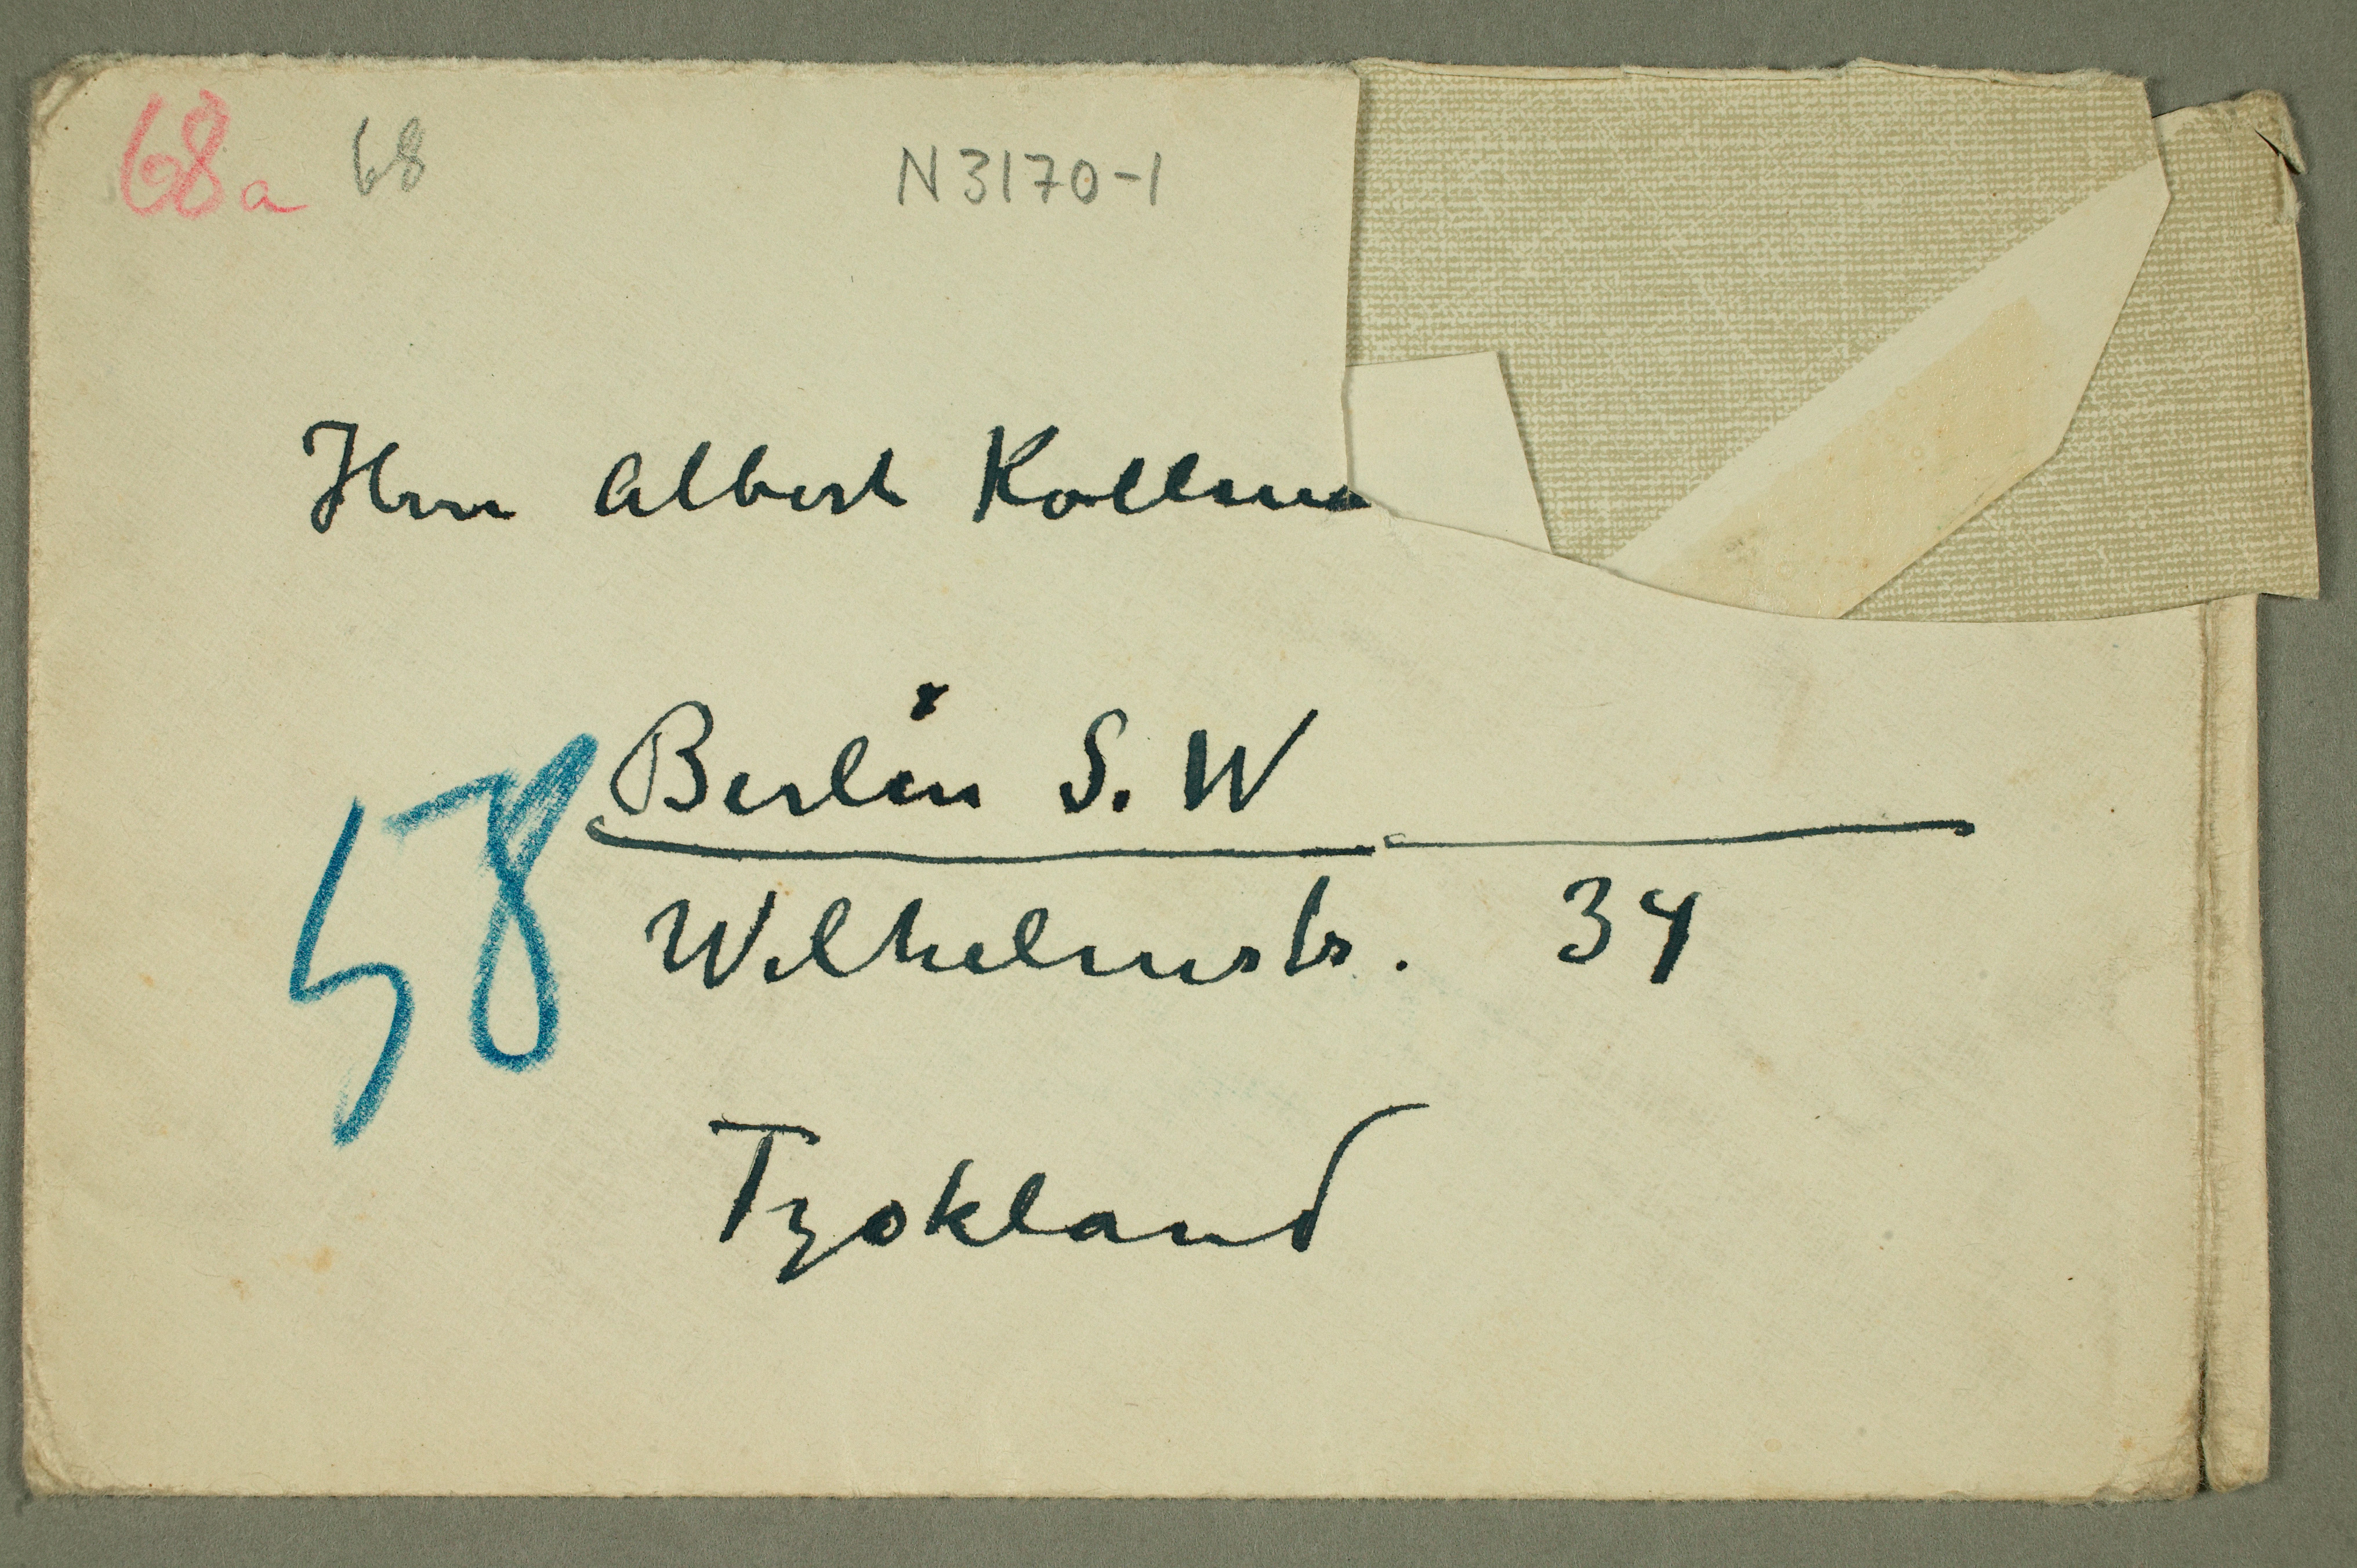 68a 68 N 3170-1
Herrn Albert Kollma
Berlin S. W
58
Wilhelmstr. 34
Tyskland